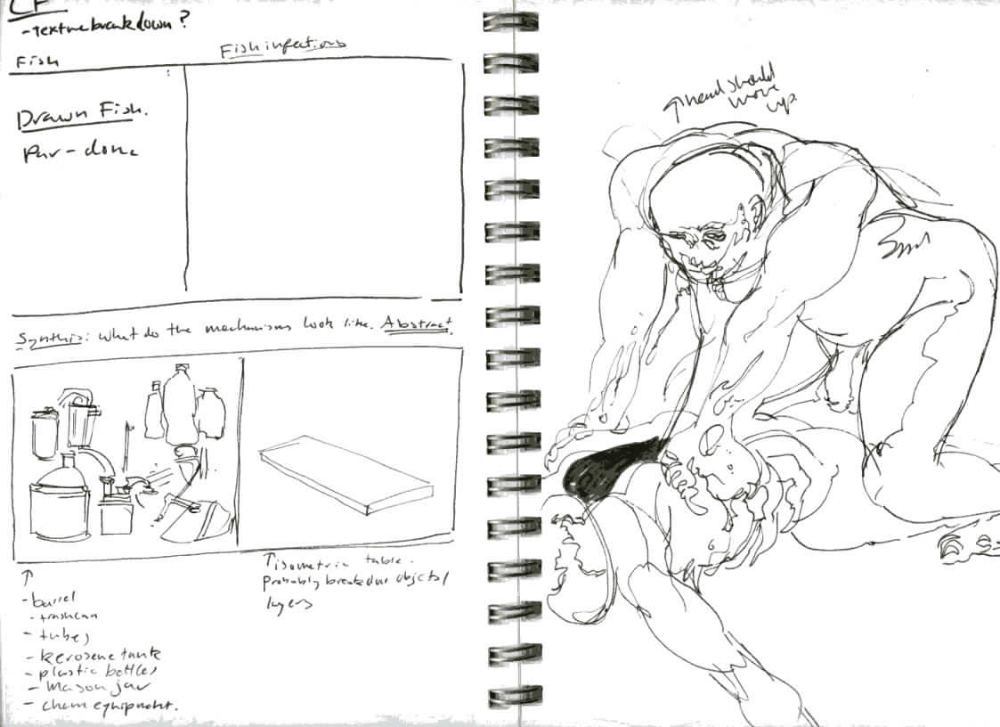 - texture breakdown?
Fish
Fish infections
Drawn Fish.
Par-done
Synthis: what do the mechanisms look like. Abstract.
↑
- barrel
- trashcan
- tubes
- kerosene tank
- plastic bottles
- Mason jar
- chem equipment.
↑ isometric table.
Probably breakdown objects/
layers
↑ head should
move
up